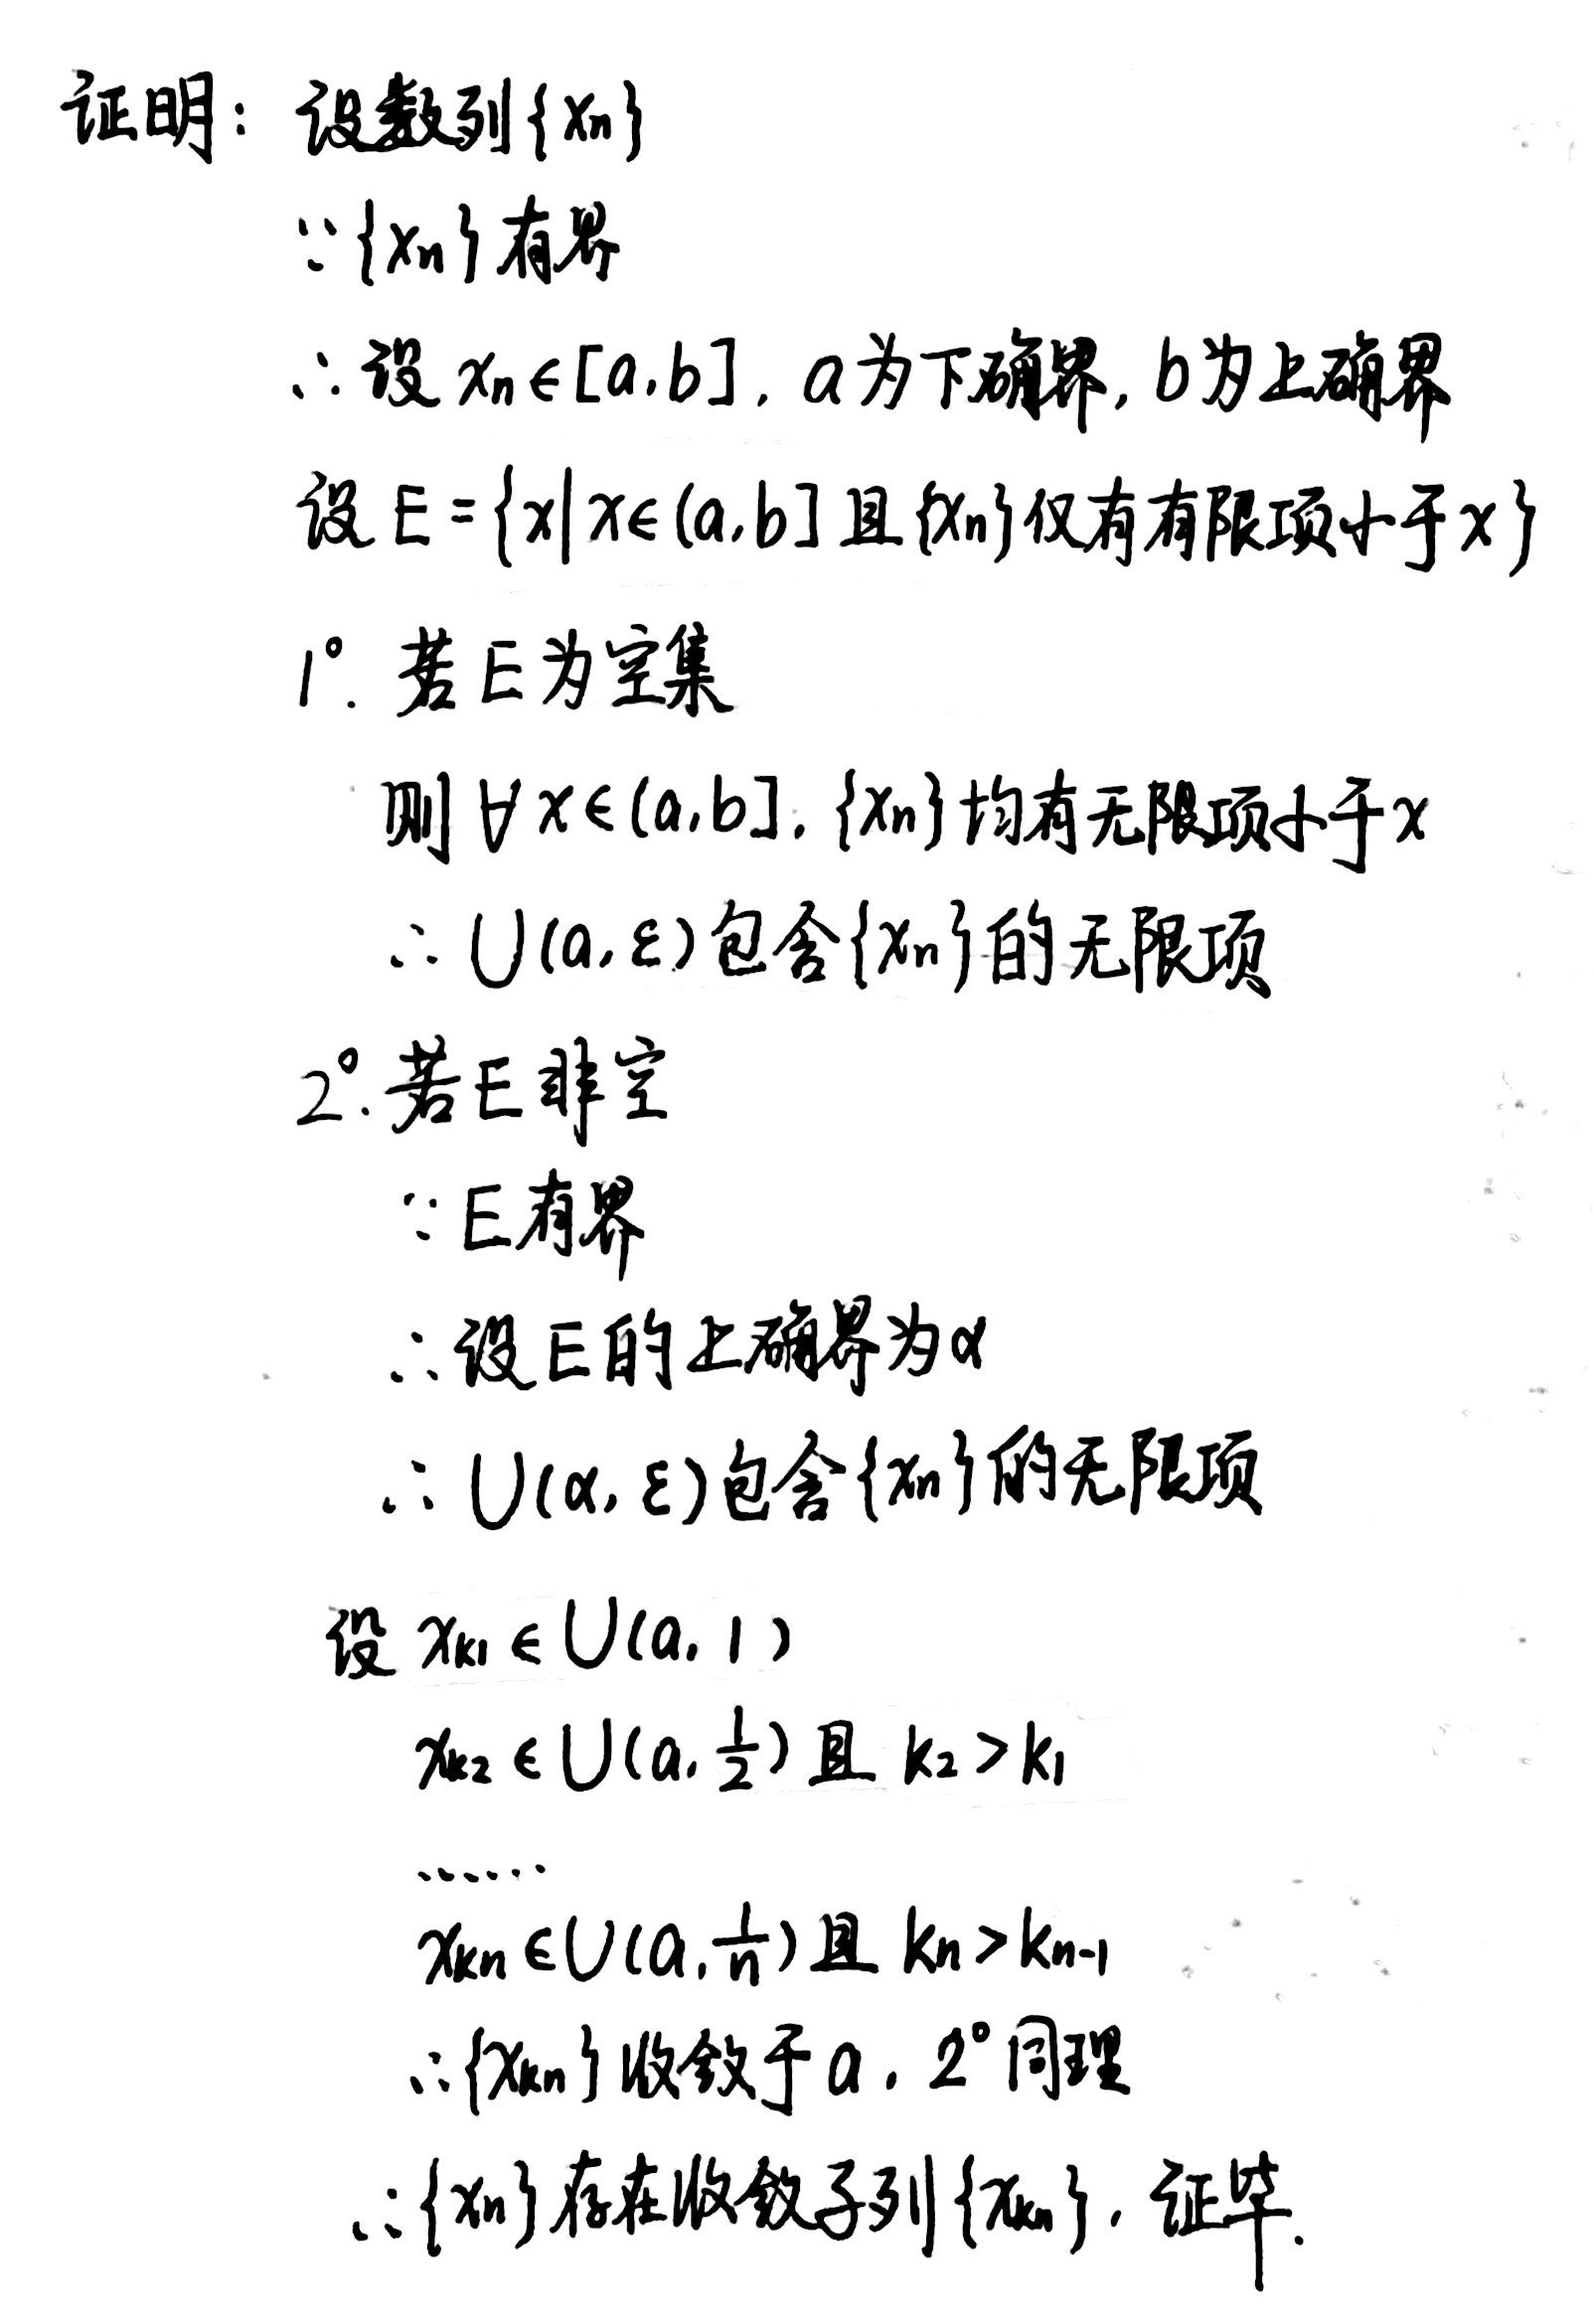 证明: 设数列{xn}
∵{xn}有界
∴设 xn∈[a,b], a为下确界, b为上确界
设 E={x|x∈(a,b]且{xn}仅有有限项小于x}
1°. 若E为空集
则∀x∈(a,b], {xn}均有无限项小于x
∴U(a,ε)包含{xn}的无限项
2°. 若E非空
∵E有界
∴设E的上确界为α
∴U(α,ε)包含{xn}的无限项
设 xk1∈U(a,1)
xk2∈U(a,1/2)且 k2>k1
……
xkn∈U(a,1/n)且 kn>kn-1
∴{xkn}收敛于a, 2°同理
∴{xn}存在收敛子列{xkn}, 证毕.